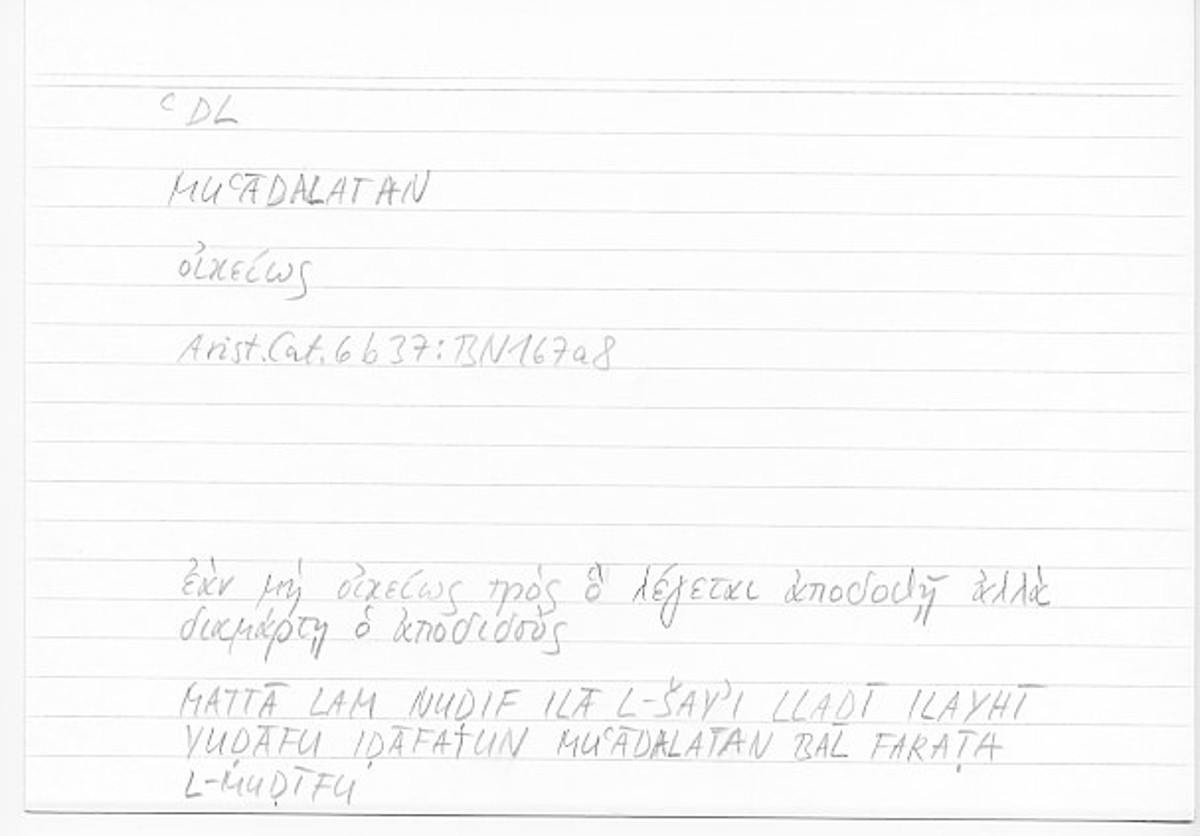 ʿDL
MUʿĀDALATAN
οἰκείως
Arist.Cat.6b37:BN167a8
ἐὰν μὴ οἰκείως πρὸς ὃ λέγεται ἀποδοθῇ ἀλλὰ
διαμάρτῃ ὁ ἀποδιδοὺς
MATTĀ LAM NUḌIF ILĀ L-ŠAYʾI LLADĪ ILAYHĪ
YUḌĀFU IḌĀFATUN MUʿĀDALATAN BAL FARAṬA
L-MUḌĪFU